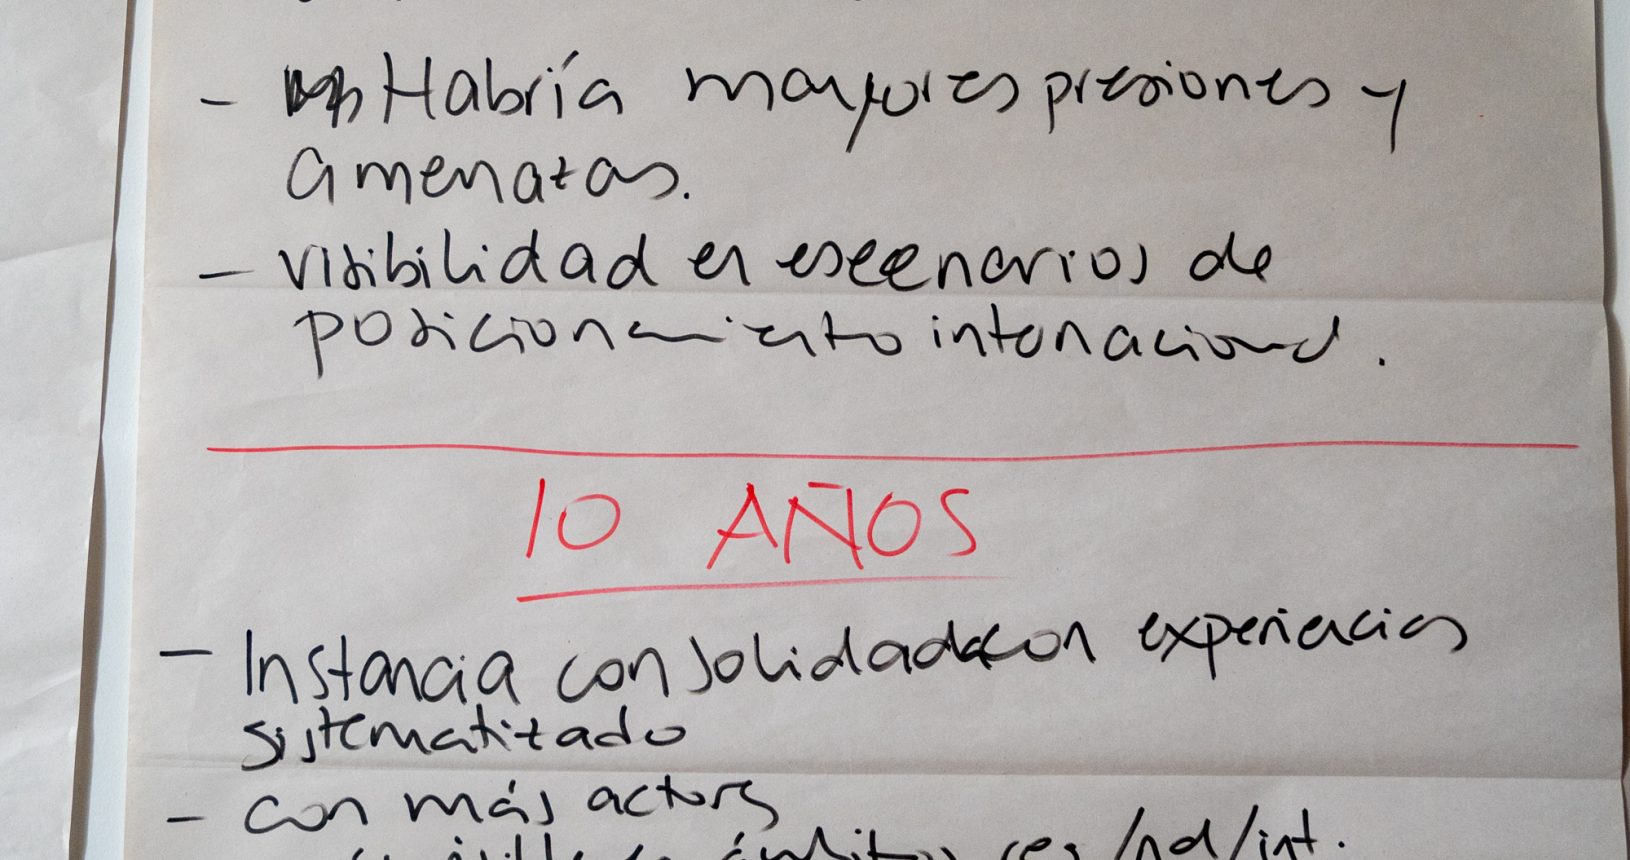 - Habría mayores presiones y
amenazas.
- visibilidad en esceenarios de
posicionamiento internacional.
10 AÑOS
- Instancia consolidada con experiencias
sistematizado
- con más actores
ámbitos reg/nal/int.